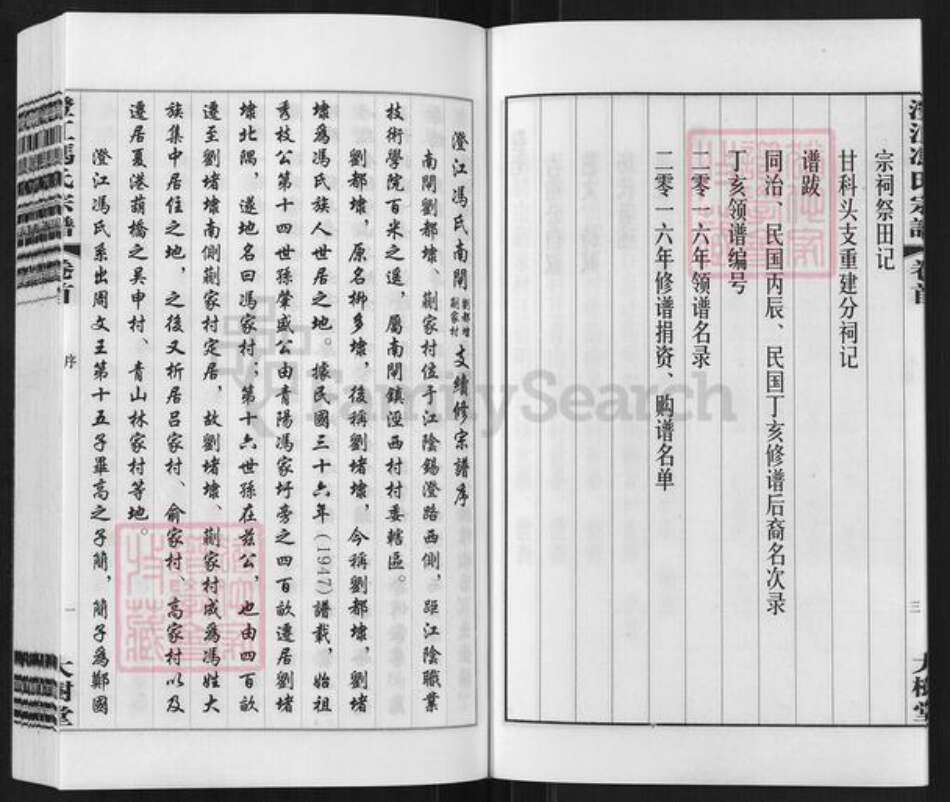 宗祠祭田记
甘科头支重建分祠记
谱跋
同治、民国丙辰、民国丁亥修谱后裔名次录
丁亥领谱编号
二零一六年领谱名录
二零一六年修谱捐资、购谱名单
三
澄江馮氏南閘劉都埭蒯家村支續修宗譜序
南閘劉都埭、蒯家村位于江陰錫澄路西側，距江陰職業
技術學院百米之遥，屬南閘鎮涇西村村委轄區。
劉都埭，原名柳多埭，後稱劉堵埭，今稱劉都埭，劉堵
埭爲馮氏族人世居之地。據民國三十六年(1947)譜載，始祖
秀枝公第十四世孫肇盛公由青陽馮家圩旁之四百畝遷居劉堵
埭北隅，遂地名曰馮家村；第十六世孫在兹公，也由四百畝
遷至劉堵埭南側蒯家村定居，故劉堵埭、蒯家村成爲馮姓大
族集中居住之地，之後又析居吕家村、俞家村、高家村以及
遷居夏港葫橋之吴申村、青山林家村等地。
澄江馮氏系出周文王第十五子畢高之子簡，簡子爲鄭國
馮氏宗譜
卷首
序
一
大樹堂
FamilySearch